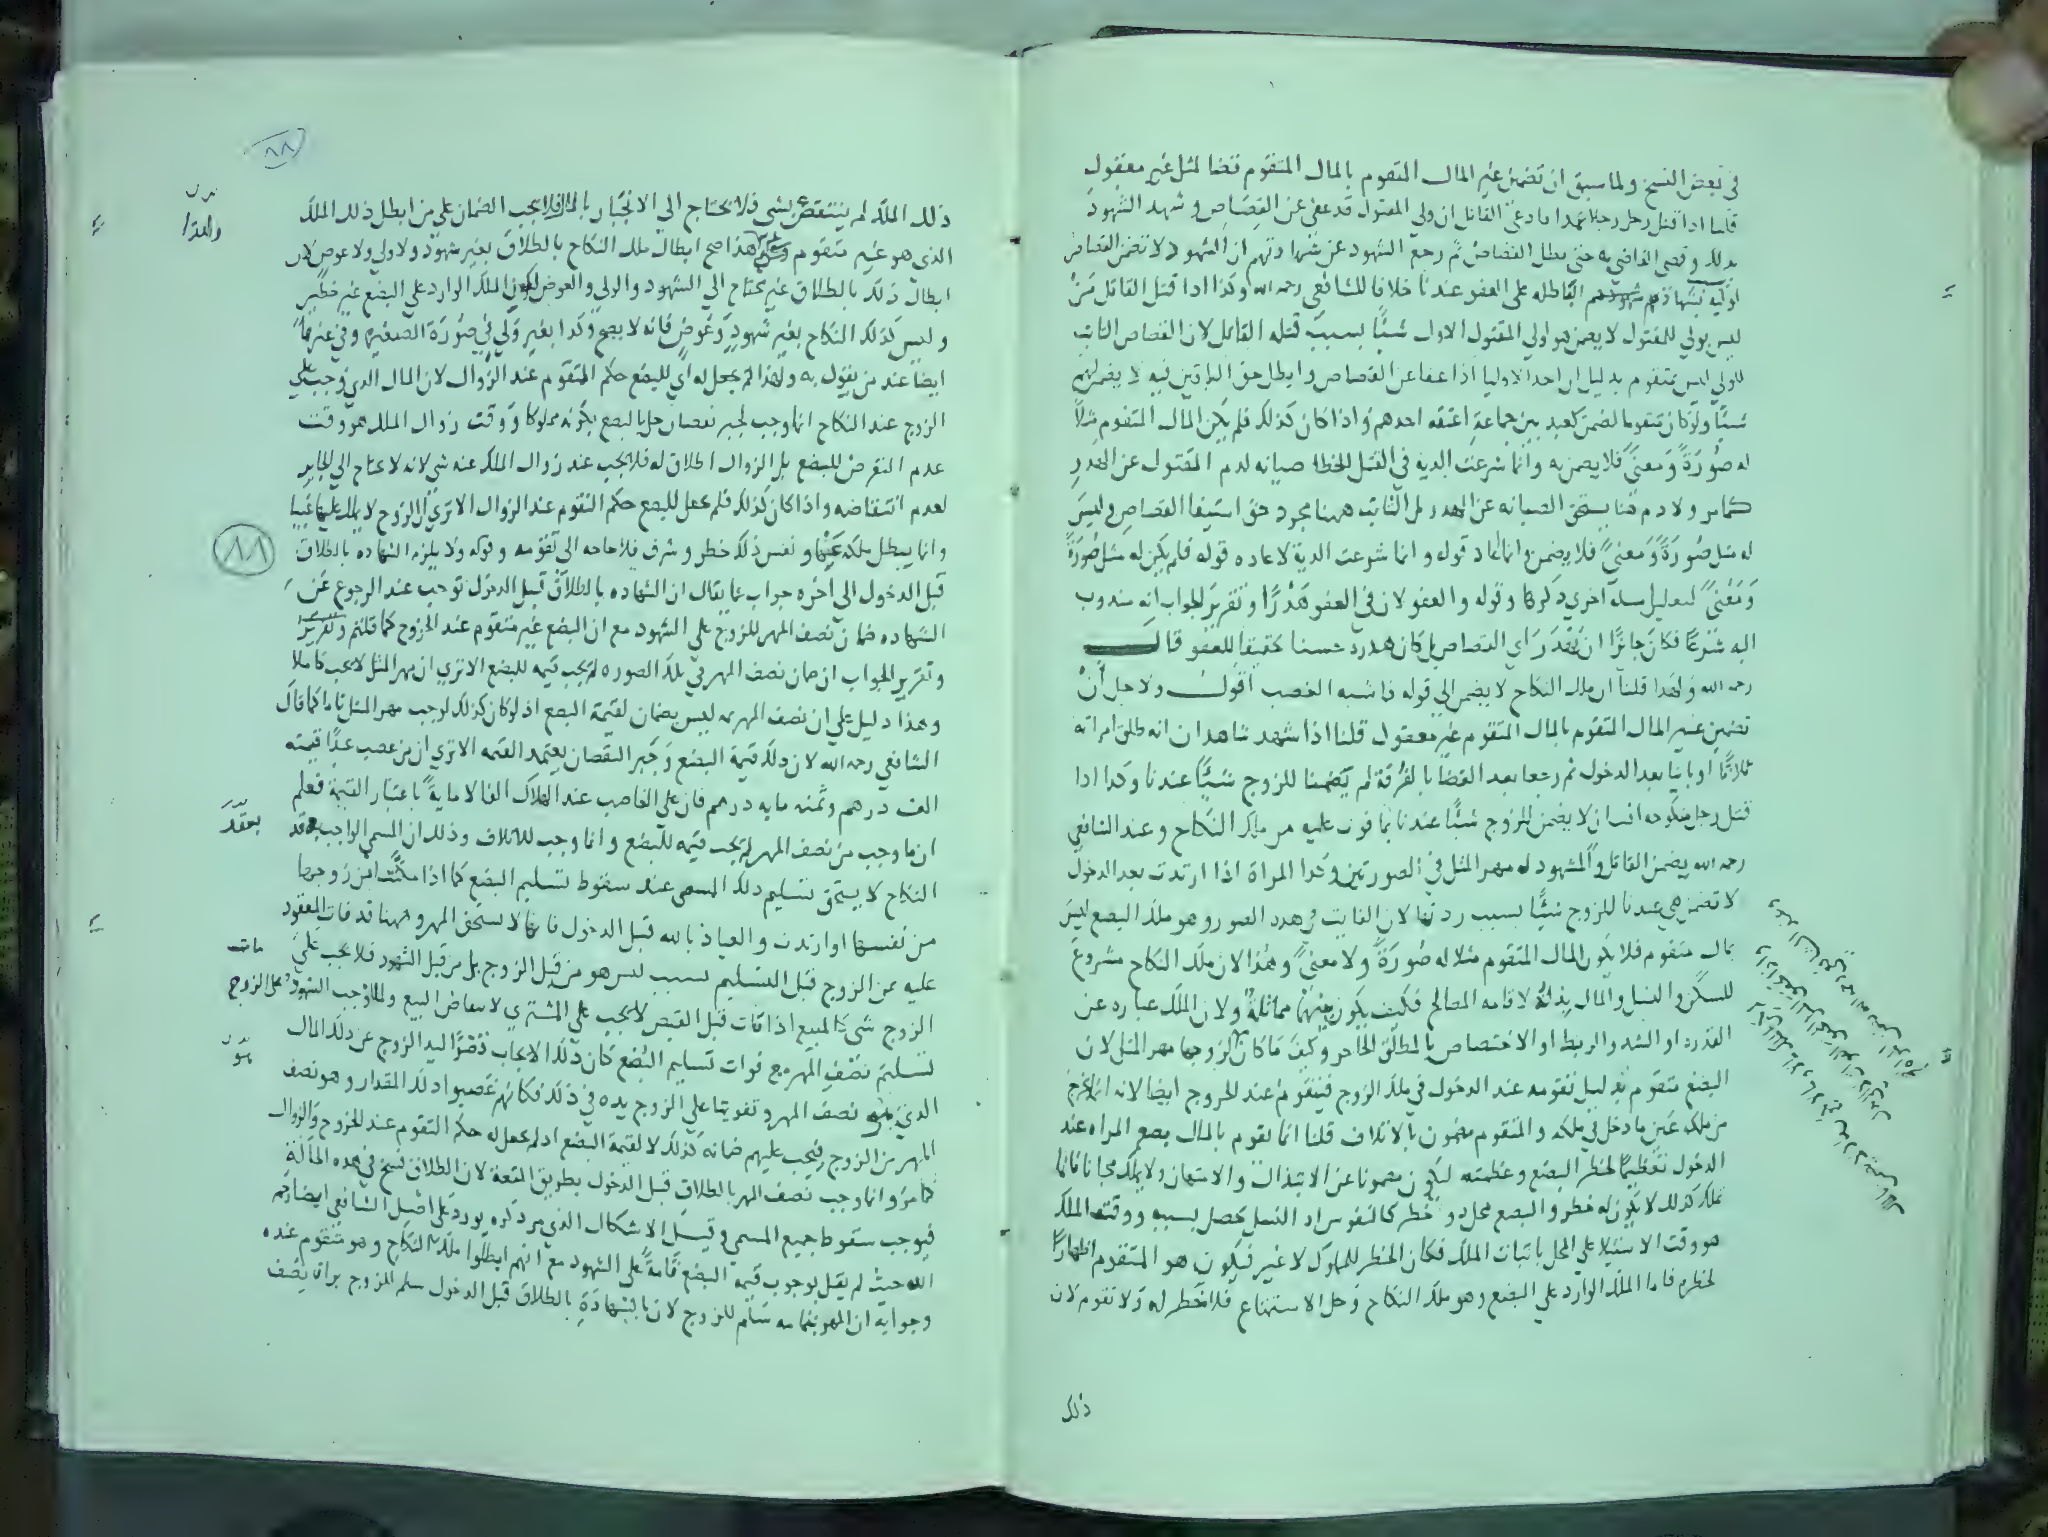 في بعض النسخ ولما سبق ان تضمين غير المال المتقوم بالمال المتقوم قضا لمثل غير معقول
قلنا اذا قتل رجل رجلا عمدا فادعى القاتل ان ولي المقتول قد عفي عن القصاص و شهد الشهود
بذلك وقضى القاضي به حتى بطل القصاص ثم رجع الشهود عن شهادتهم ان الشهود لا تضمن القصاص
لوليه بشهادتهم الباطله على العفو عندنا خلافا للشافعي رحمه الله وكذا اذا قتل القاتل من
ليس بولي للمقتول لا يضمن هو لولي المقتول الاول شيًا بسبب قتله القاتل لان القصاص الثابت
للولي ليس بمتقوم بدليل ان احد الاوليا اذا عفا عن القصاص وابطل حق الباقين فيه لا يضمن لهم
شيًا ولو كان متقوما لضمن كعبد بين جماعة اعتقه احدهم واذا كان كذلك فلم يكن المال المتقوم مثلاً
له صُورَةً وَمعنىً فلا يضمن به وانما شرعت الديه في القتل الخطا صيانه لدم المقتول عن الهدر
كما مر ولا دم هنا يستحق الصيانه عن الهدر بل الثابت ههنا مجرد حق استيفا القصاص وليس
له مثل صُورَةً وَمعنىً فلا يضمن وانما اعاد قوله وانما شرعت الدية لاعاده قوله فلم يكن له مثل صُورَةً
وَمَعْنىً لتعليل مسلة اخري ذكرها وقوله والعفو لان في العفو هَدْرًا وتقرير الجواب انه مندوب
اليه شَرْعًا فكان جائزًا ان يُهْدَرَ اي القصاص بل كان هدره حسنا تحقيقا للعفو قال
رحمه الله وَلهذا قلنا ان ملك النكاح لا يضمن الي قوله فاشبه الغصب اقول ولاجل أنّ
تضمين غير المال المتقوم بالمال المتقوم غير معقول قلنا اذا شهد شاهدان انه طلق امراته
ثلاثًا او باينا بعد الدخول ثم رجعا بعد القضا بالفرقة لم يَضمنا للزوج شيًا عندنا وكذا اذا
قتل رجل منكوحه انسان لا يضمن للزوج شيًا عندنا بما فوت عليه من ملك النكاح وعند الشافعي
رحمه الله يضمن القاتل والشهود له مهر المثل في الصورتين وكذا المراة اذا ارتدت بعد الدخول
لا تضمن هي عندنا للزوج شيًا بسبب ردتها لان الفايت في هده الصور وهو ملك البضع ليس
بمال متقوم فلا يكون المال المتقوم مثلا له صُورَةً ولا معنىً وهذا لان ملك النكاح مشروع
للسكن والنسل والمال بِذلَةٌ لاقامه المصالح فكيف يكون بينهما مماثلةٌ ولان الملك عباره عن
القدره او الشد والربط او الاختصاص بالمطلق الحاجر وكيف ما كان لزوجها مهر المثل لان
البضع متقوم بدليل تقومه عند الدخول في ملك الزوج فيتقوم عند الخروج ايضا لانه انما يخرج
من ملكه عَين ما دخل في ملكه والمتقوم مضمون بالاتلاف قلنا انما تقوم بالمال بضع المراه عند
الدخول تعظيمًا لخطر البضع وعظمته ليكون مصونا عن الابتذال والامتهان ولا يملك مجانا فان ما
يملك كذلك لا يكون له خطر والبضع محل ذو خطر كالنفوس اذ النسل يحصل بسببه ووقت الملك
هو وقت الاستيلا على المحل باثبات الملك فكان الخطر للمملوك لا غير فيكون هو المتقوم اظهارًا
لخطره فاما الملك الوارد على البضع وهو ملك النكاح وحل الاستمتاع فلا خطر له ولا تقوم لان
ذلك
٨٨
ذلك الملك لم ينتقص بشي فلا يحتاج الي الانجبار بالمال فلا يجب الضمان على من ابطل ذلك الملك
الذي هو غير متقوم ولهذا صح ابطال ملك النكاح بالطلاق بغير شهود ولا ولي ولا عوض لان
ولهذا
ابطال ذلك بالطلاق غير محتاج الي الشهود والولي والعوض لكون الملك الوارد على البضع غير خطير
وليس كذلك النكاح بغير شُهودٍ وَعوضٍ فانه لا يصح وكذا بغير وَلي في صُورَة الصغيره وفي غيرها
ايضا عند من يقول به ولهذا لم يجعل له اي للبضع حكم المتقوم عند الزوال لان المال الذي وجب على
الزوج عند النكاح انما وجب لجبر نقصان حل بالبضع بكونه مملوكا وَوقت زوال الملك هو وقت
عدم النقص للبضع بل الزوال اطلاق له فلا يجب عند زوال الملك عنه شي لانه لا يحتاج الي الجابر
لعدم انتقاضه واذا كان كذلك فلم يجعل للبضع حكم التقوم عند الزوال الا تري ان الزوج لا يملك عليها شيا
وانما يبطل ملكه عنها ونفس ذلك خطر وشرف فلا حاجه الي تقومه وقوله ولا يلزم الشهاده بالطلاق
٨٨
قبل الدخول الي اخره جواب عما يقال ان الشهاده بالطلاق قبل الدخول توجب عند الرجوع عَن
الشهاده ضمان نصف المهر للزوج على الشهود مع ان البضع غير متقوم عند الخروج كما قلتم
وتقرير الجواب ان ضمان نصف المهر في تلك الصوره لم يجب قيمه للبضع الا تري ان مهر المثل لا يجب كاملا
وهذا دليل على ان نصف المهر ليس بضمان لقيمة البضع اذ لو كان كذلك لوجب مهر المثل تاما كما قال
الشافعي رحمه الله لان ذلك قيمة البضع وَجَبر النقصان يعتمد القيمه الا تري ان من غصب عبدًا قيمته
الف درهم وثمنه مايه درهم فان على الغاصب عند الهلاك الفا لا مايةً باعتبار القيمة فعلم
ان ما وجب من نصف المهر لم يجب قيمه للبضع وانما وجب للاتلاف وذلك ان المسمي الواجب بعقد
بعقد
النكاح لا يستحق تسليم ذلك المسمى عند سقوط تسليم البضع كما اذا مكّنت ابن زوجها
من نفسها او ارتدت والعياذ بالله قبل الدخول فانها لا تستحق المهر وههنا قد فات المعقود
عليه عن الزوج قبل التسليم بسبب ليس هو من قِبل الزوج بل من قبل الشهود فلا يجب على
الزوج شي كالمبيع اذا فات قبل القبض لا يجب على المشتري لانتقاض البيع ولما اوجب الشهود على الزوج
تسليم نصف المهر مع فوات تسليم البُضع كان ذلك الايجاب قصْرًا ليد الزوج عن ذلك المال
الذي هو نصف المهر وتفويتا على الزوج يده في ذلك فكانهم غصبوا ذلك المقدار وهو نصف
المهر من الزوج فيجب عليهم ضمانه كذلك لا لقيمة البضع اذ لم يجعل له حكم التقوم عند الخروج والزوال
كما مر وانما وجب نصف المهر بالطلاق قبل الدخول بطريق المتعة لان الطلاق فسخ في هذه الحالة
فيوجب سقوط جميع المسمى وقيل الاشكال الذي مر ذكره يورد على اصل الشافعي ايضا رحمه
الله حيث لم يقل بوجوب قيمة البضع تامةً على الشهود مع انهم ابطلوا ملك النكاح وهو متقوم عنده
وجوابه ان المهر بتمامه سالم للزوج لان بالشهادة بالطلاق قبل الدخول سلم للزوج براة نصف